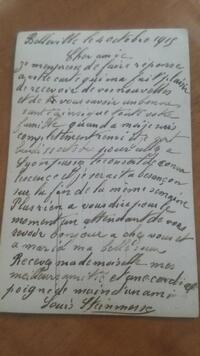 Belleville le 4 octobre 1915
Cher amie
Je m'enpresse de faire réponse
a votre carte qui ma fait plaisir
de recevoir de vos nouvelles
et de vous savoir en bonne
santé ainsi que toute votre
famille quand a moi je suis
complètement remis et je
pour allez a
Lyon passer le conseil de conva
lescence et je serait a besançon
sur la fin de la même semaine
Plus rien a vous dire pour le
moment en attendant de vous
revoir bonjour a chez vous et
a maria ma belle sœur
Recevez mademoiselle mes
meilleures amitiés et une cordial
poigne de main d'un ami
Louis